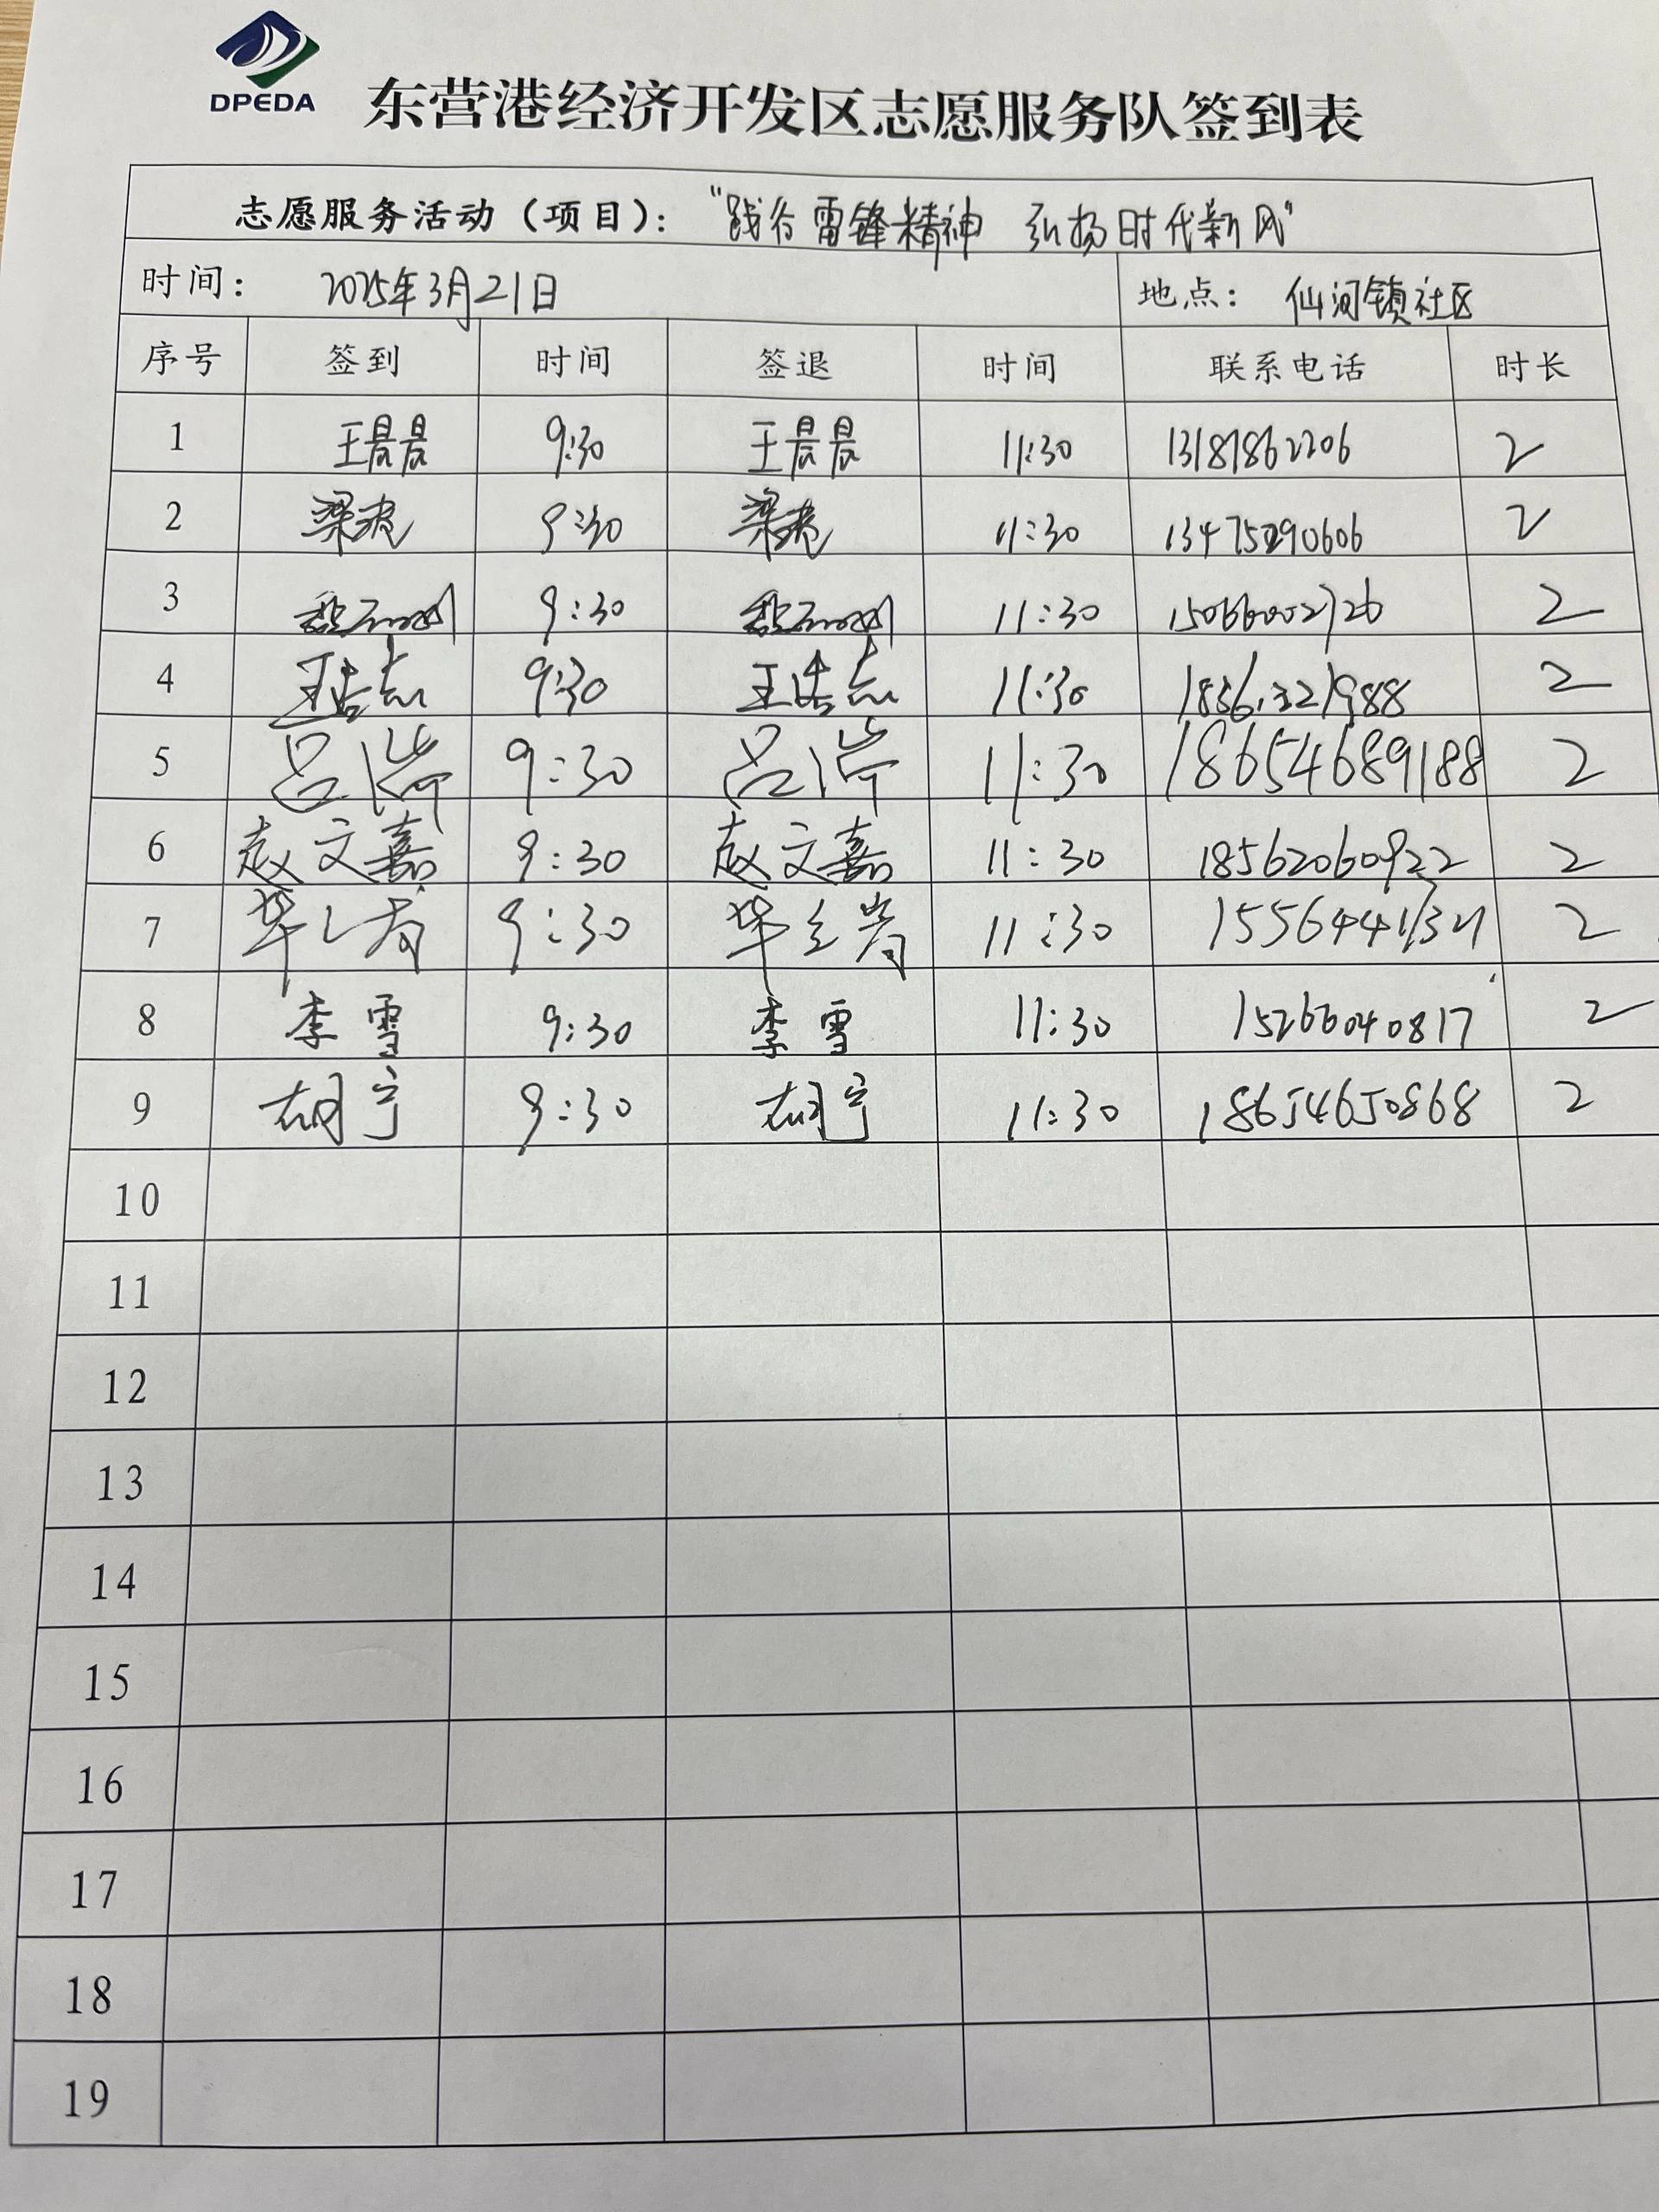 DPEDA
东营港经济开发区志愿服务队签到表
志愿服务活动（项目）： "践行雷锋精神 弘扬时代新风"
时间： 2025年3月21日 地点： 仙河镇社区
序号 签到 时间 签退 时间 联系电话 时长
1 王晨晨 9:30 王晨晨 11:30 13181862206 2
2 梁 9:30 梁 11:30 13475290606 2
3 9:30 11:30 2
4 王志 9:30 王志 11:30 2
5 吕 9:30 吕 11:30 18654689188 2
6 赵文嘉 9:30 赵文嘉 11:30 18562060922 2
7 9:30 11:30 2
8 李雪 9:30 李雪 11:30 15266040817 2
9 胡宁 9:30 胡宁 11:30 18654650868 2
10
11
12
13
14
15
16
17
18
19